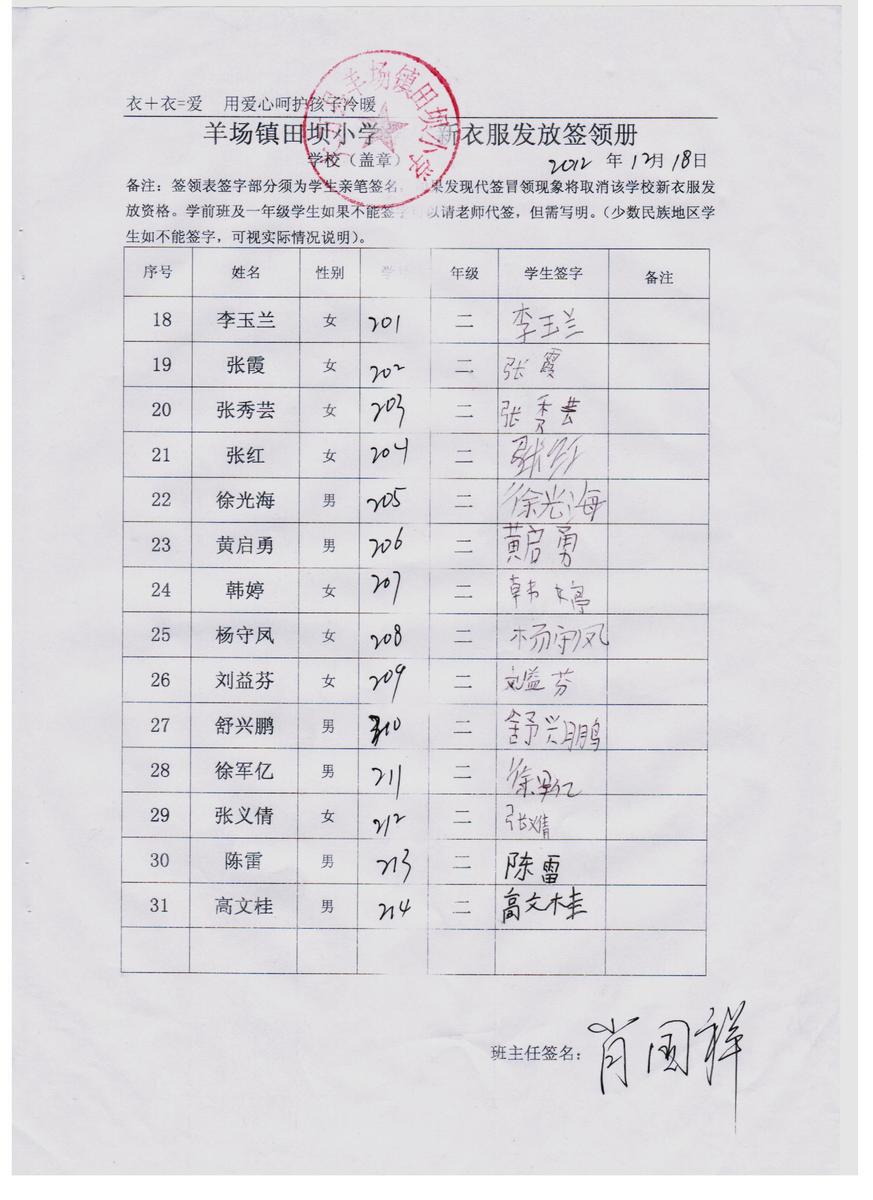 衣+衣=爱 用爱心呵护孩子冷暖
羊场镇田坝小学 新衣服发放签领册
学校（盖章） 2012 年 12月 18日
羊场镇田坝小学
备注：签领表签字部分须为学生亲笔签名， 果发现代签冒领现象将取消该学校新衣服发
放资格。学前班及一年级学生如果不能签字可以请老师代签，但需写明。（少数民族地区学
生如不能签字，可视实际情况说明）。
序号 姓名 性别 学 年级 学生签字 备注
18 李玉兰 女 201 二 李玉兰
19 张霞 女 202 二 张霞
20 张秀芸 女 203 二 张秀芸
21 张红 女 204 二 张红
22 徐光海 男 205 二 徐光海
23 黄启勇 男 206 二 黄启勇
24 韩婷 女 207 二 韩婷
25 杨守凤 女 208 二 杨守凤
26 刘益芬 女 209 二 刘益芬
27 舒兴鹏 男 210 二 舒兴鹏
28 徐军亿 男 211 二 徐军亿
29 张义倩 女 212 二 张义倩
30 陈雷 男 213 二 陈雷
31 高文桂 男 214 二 高文桂
班主任签名： 肖国祥